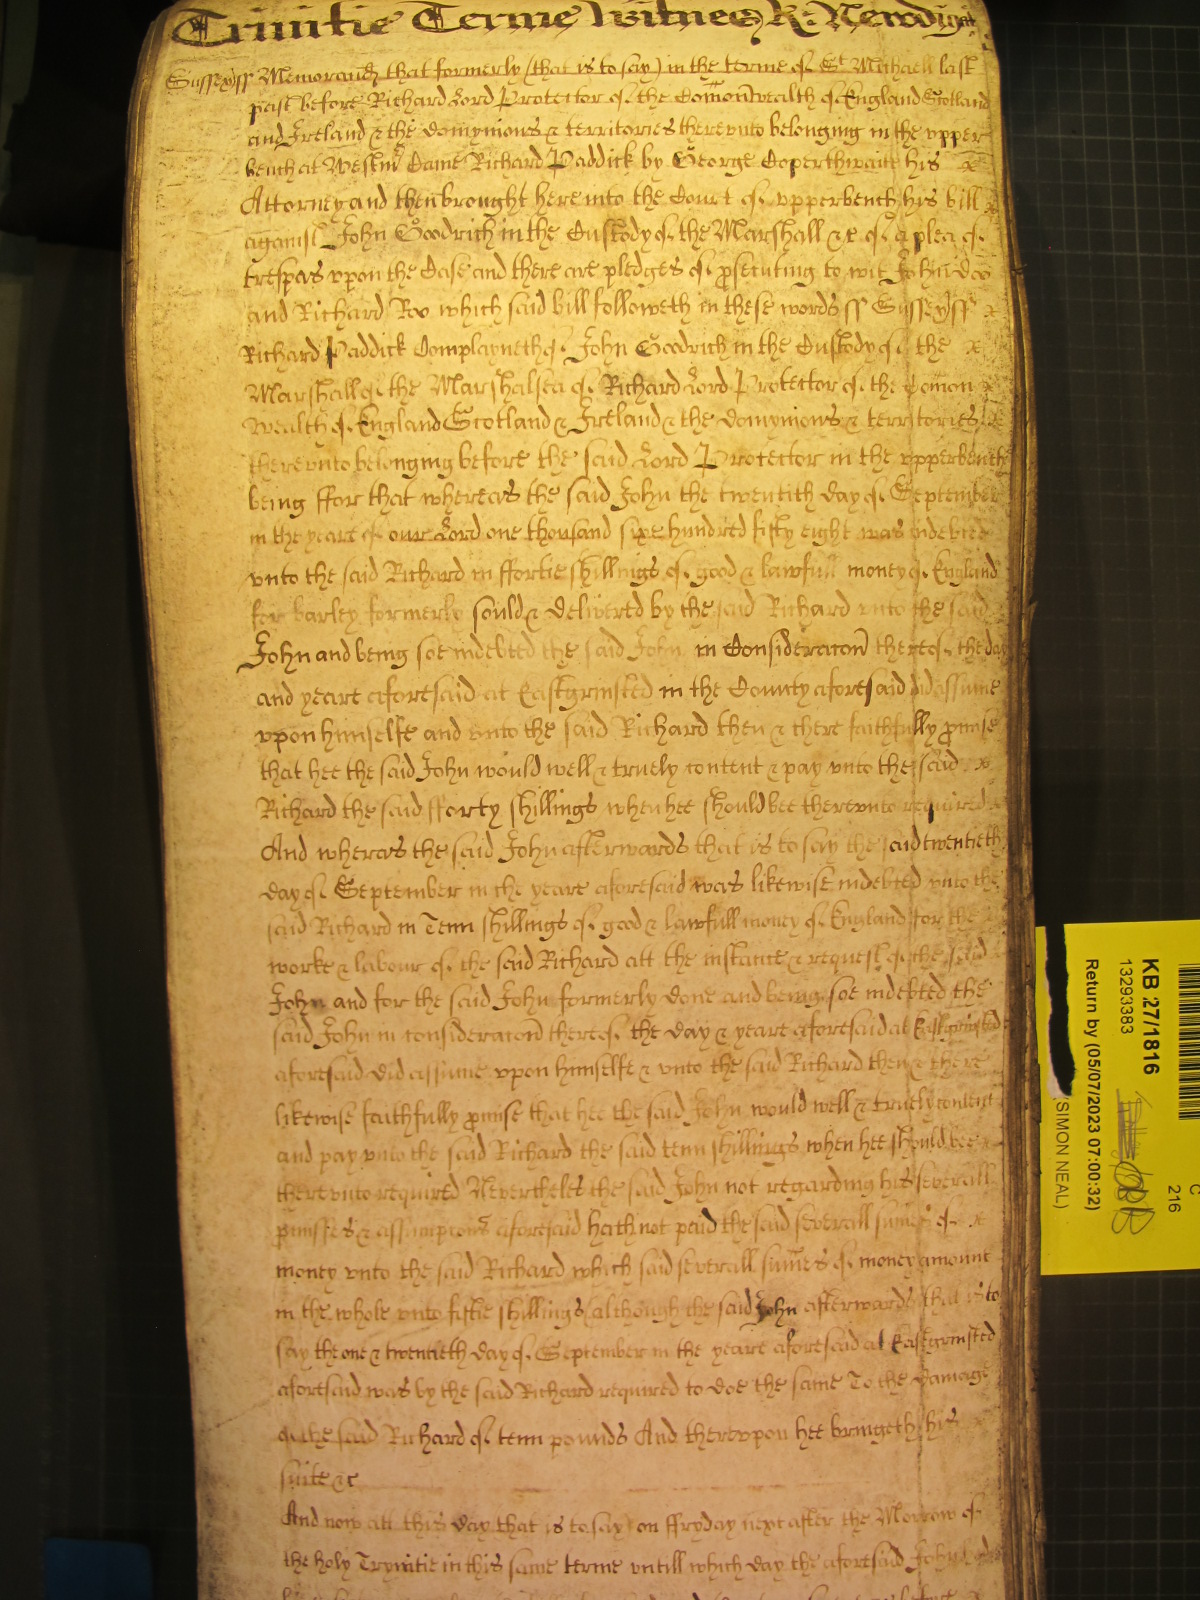 Trinitie Terme Witnes R: Newdigat
Sussex ss Memorand that formerly (that is to say) in the terme of St Michaell last
past before Richard Lord Protector of the Comonwealth of England Scotland
and Ireland & the dominyions & territories therevnto belonging in the vpper
bench at Westmr Came Richard Paddick by George Coperthwaite his x
Attorney and then brought here into the Court of vpperbench his bill x
against John Goodrich in the Custody of the Marshall &c of a plea of
trespas vpon the Case and there are pledges of psecuting to wit John Doo
and Richard Roo which said bill followeth in these words ss Sussex ss x
Richard Paddick Complayneth of John Goodrich in the Custody of the x
Marshall of the Marshalsea of Richard Lord Protector of the Comon x
wealth of England Scotland & Ireland & the dominyions & territories x
therevnto belonging before the said Lord Protector in the vpperbench
being ffor that whereas the said John the twentith day of September
in the yeare of our Lord one thousand sixe hundred fifty eight was indebted
vnto the said Richard in ffortie shillings of good & lawfull money of England
for barley formerly sould & delivered by the said Richard vnto the said
John and being soe indebted the said John in Consideracon thereof the day
and yeare aforesaid at Eastgrinsted in the County aforesaid did assume
vpon himselfe and vnto the said Richard then & there faithfully pmise
that hee the said John would well & truely content & pay vnto the said x
Richard the said fforty shillings when hee should bee therevnto required
And whereas the said John afterwards that is to say the said twentieth
day of September in the yeare aforesaid was likewise indebted vnto the
said Richard in Tenn shillings of good & lawfull money of England for the
worke & labour of the said Richard att the instance & request of the said
John and for the said John formerly done and being soe indebted the
said John in consideracon thereof the day & yeare aforesaid at Eastgrinsted
aforesaid did assume vpon himselfe & vnto the said Richard then & there
likewise faithfully pmise that hee the said John would well & truely content
and pay vnto the said Richard the said tenn shillings when hee should bee
therevnto required Neverthelesse the said John not regarding his severall
pmises & assumpcons aforesaid hath not paid the said severall sumes of x
money vnto the said Richard which said severall sumes of money amount
in the whole vnto fiftie shillings (although the said John afterwards that is to
say the one & twentieth day of September in the yeare aforesaid at Eastgrinsted
aforesaid was by the said Richard required to doe the same To the damage
of the said Richard of tenn pounds And therevpon hee bringeth his x
suite &c
And now att this day that is to say on ffryday next after the Morrow of
the holy Trynitie in this same terme vntill which day the aforesaid John
KB 27/1816
13293383
Return by (05/07/2023 07:00:32)
(SIMON NEAL)
C
216